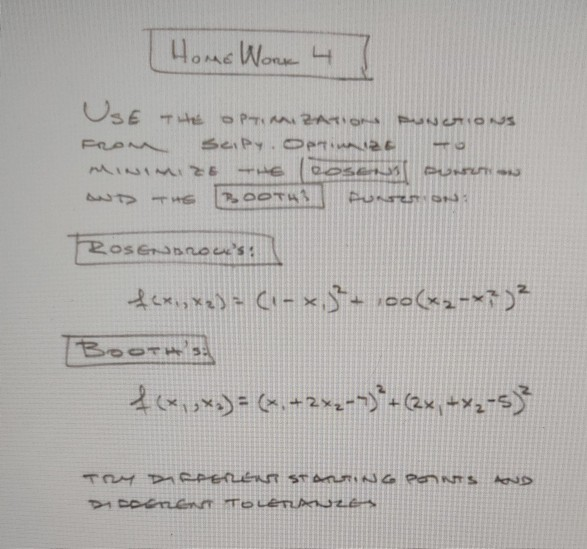 HOMEWORK 4
USE THE OPTIMIZATION FUNCTIONS
FROM SCIPY.OPTIMIZE TO
MINIMIZE THE ROSEN'S FUNCTION
AND THE BOOTH'S FUNCTION:
ROSENBROCK'S:
f(x₁,x₂) = (1-x₁)² + 100(x₂-x₁²)²
BOOTH'S:
f(x₁,x₂) = (x₁+2x₂-7)² + (2x₁+x₂-5)²
TRY DIFFERENT STARTING POINTS AND
DIFFERENT TOLERANZES